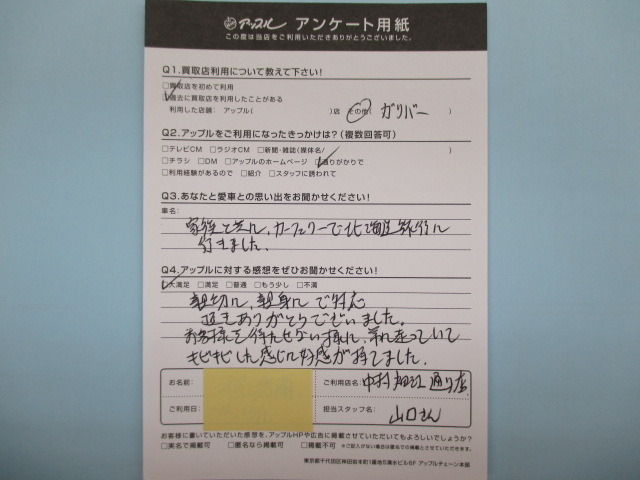 アップル アンケート用紙
この度は当店をご利用いただきありがとうございました。
Q1.買取店利用について教えて下さい!
□買取店を初めて利用
□過去に買取店を利用したことがある
利用した店舗: アップル( )店 その他( ガリバー )
Q2.アップルをご利用になったきっかけは?(複数回答可)
□テレビCM □ラジオCM □新聞・雑誌(媒体名/ )
□チラシ □DM □アップルのホームページ □通りがかりで
□利用経験があるので □紹介 □スタッフに誘われて
Q3.あなたと愛車との思い出をお聞かせください!
車名:
家族と共に、カーフェリーで北海道旅行に
行きました。
Q4.アップルに対する感想をぜひお聞かせください!
□大満足 □満足 □普通 □もう少し □不満
親切に、親身にで対応
ありがとうございました。
お客様を待たせない様に、走っていて
キビキビした感じに好感が持てました。
お名前:
ご利用店名: 中村 通り店
ご利用日:
担当スタッフ名: 山口さん
お客様に書いていただいた感想を、アップルHPや広告に掲載させていただいてもよろしいでしょうか?
□実名で掲載可 □匿名なら掲載可 □掲載不可 ※ご記入がない場合は匿名での掲載とさせていただきます。
東京都千代田区神田岩本町1番地5清水ビル6F アップルチェーン本部